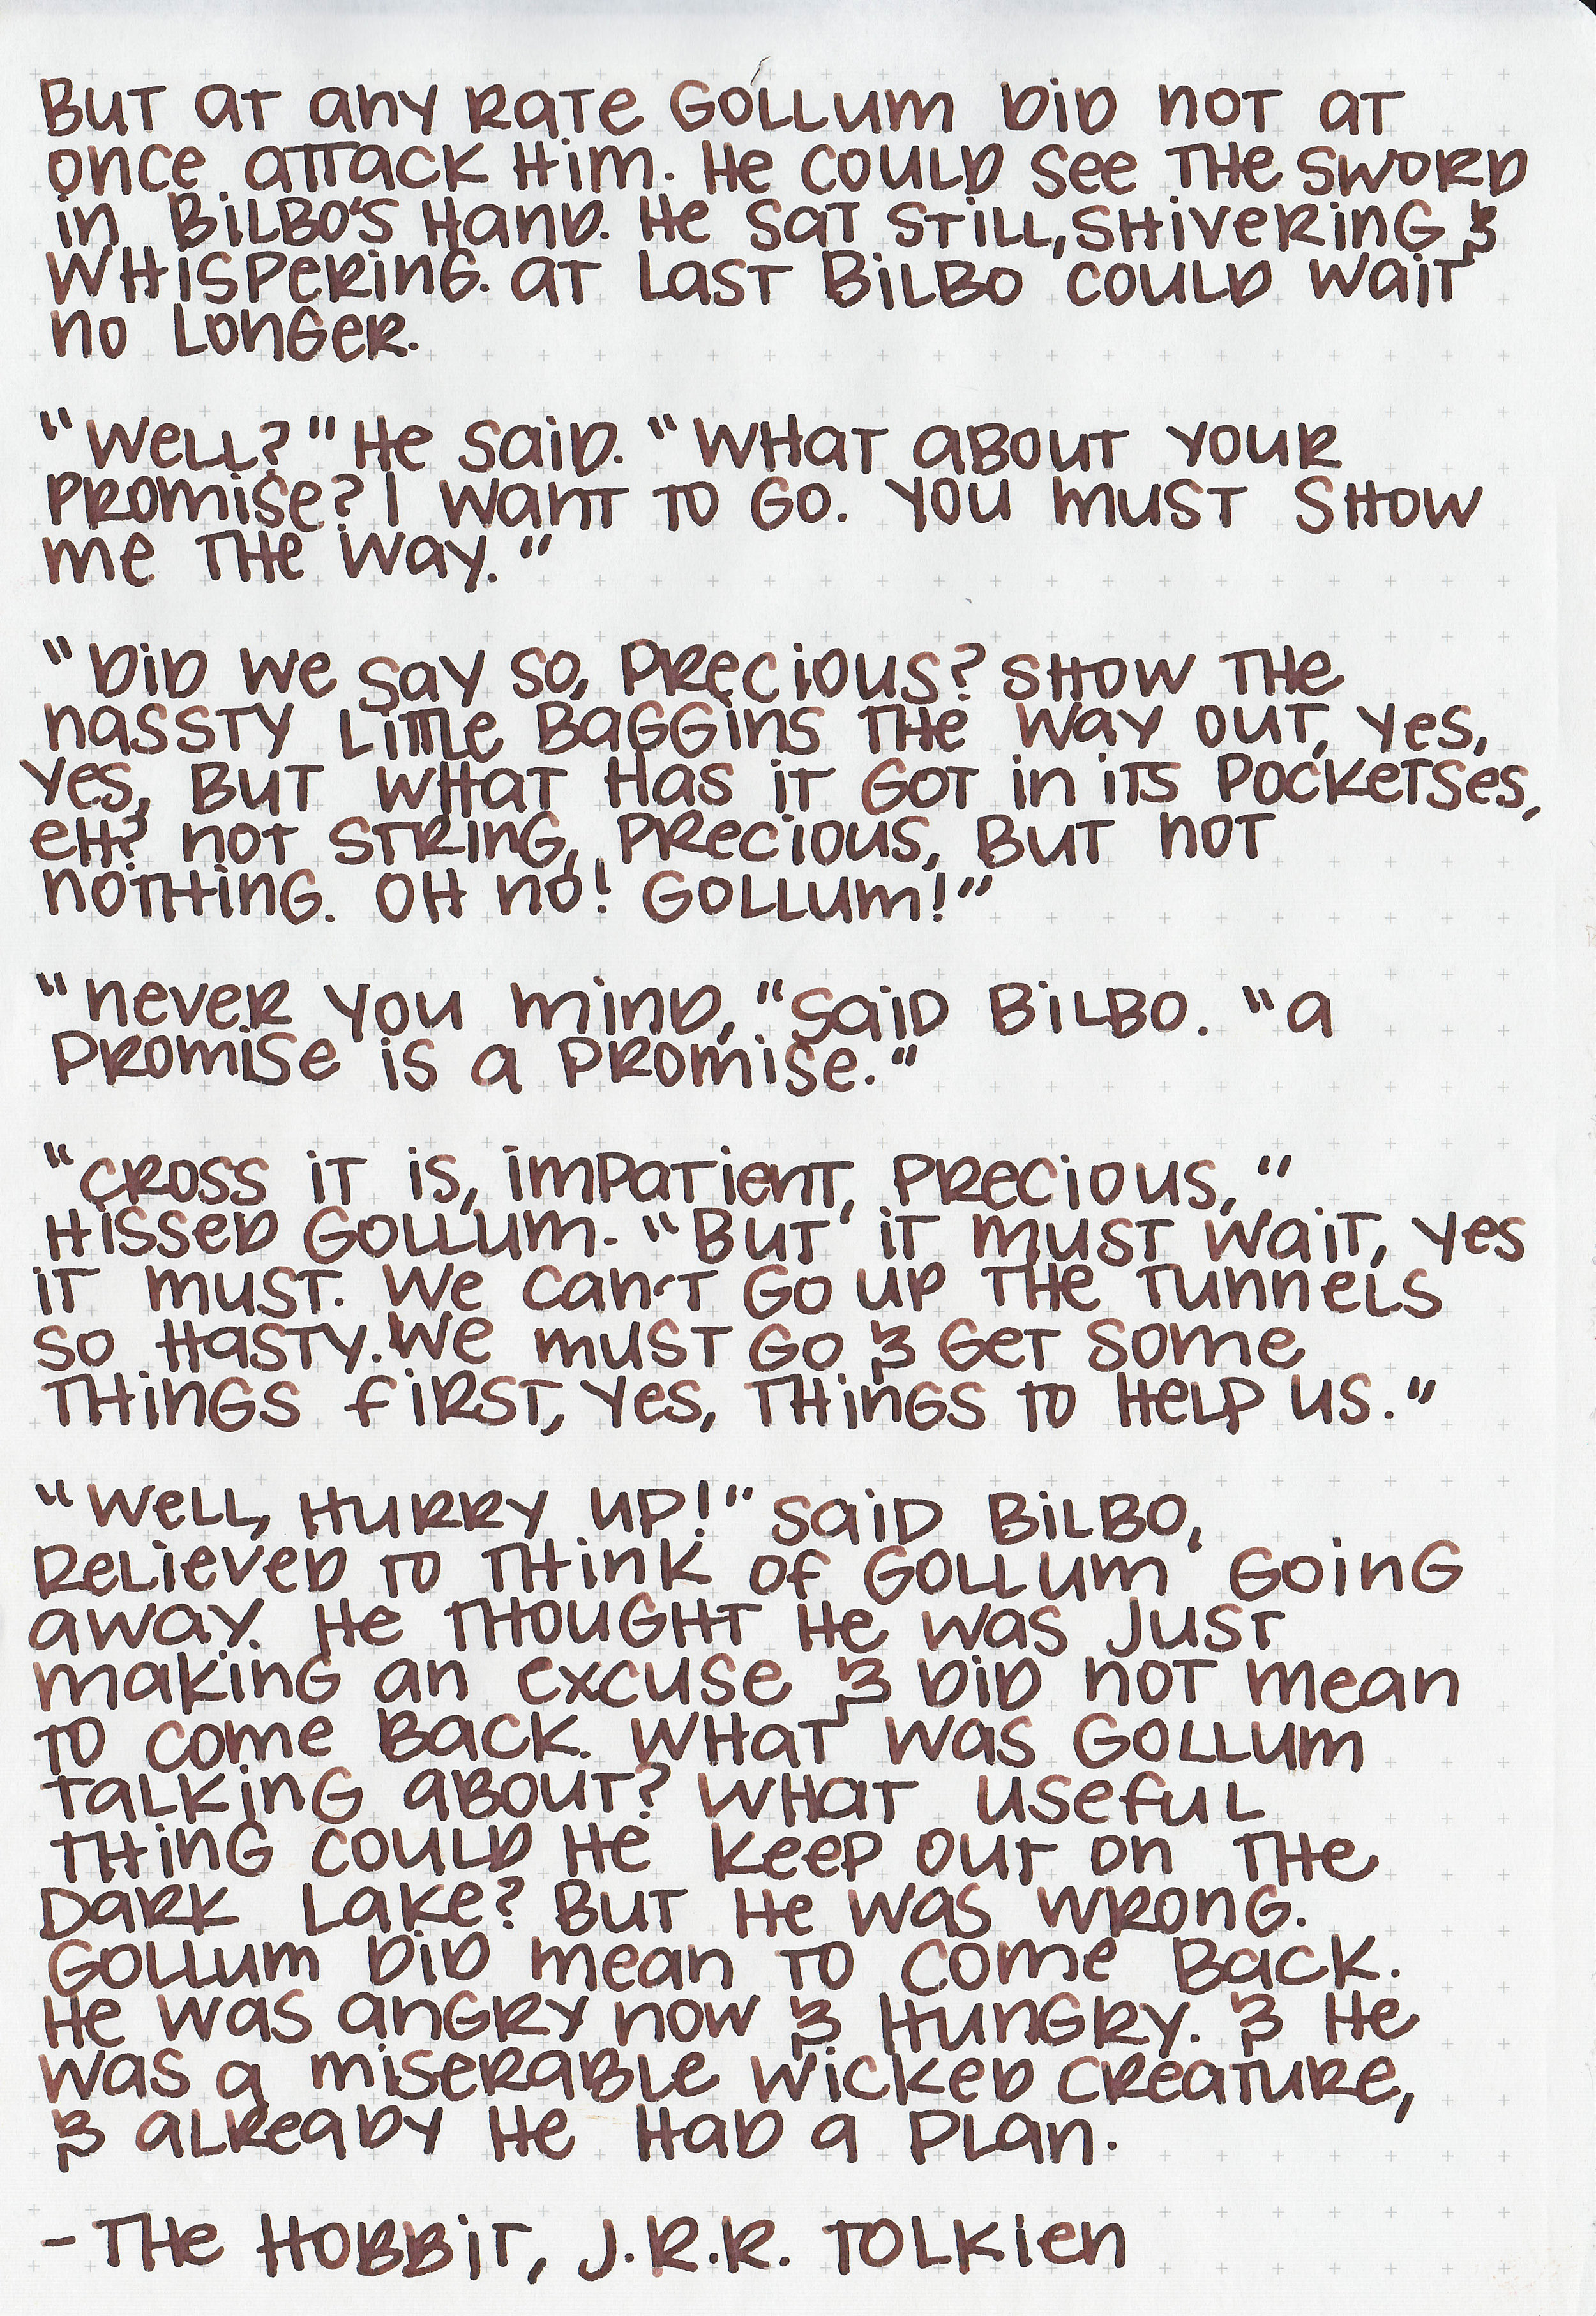 But at any rate Gollum did not at
once attack him. He could see the sword
in Bilbo's hand. He sat still, shivering &
whispering. At last Bilbo could wait
no longer.
"Well?" he said. "What about your
promise? I want to go. You must show
me the way."
"Did we say so, precious? Show the
nassty little Baggins the way out, yes,
yes, but what has it got in its pocketses,
eh? Not string, precious, but not
nothing. Oh no! Gollum!"
"Never you mind," said Bilbo. "A
promise is a promise."
"Cross it is, impatient, precious,"
hissed Gollum. "But it must wait, yes
it must. We can't go up the tunnels
so hasty. We must go & get some
things first, yes, things to help us."
"Well, hurry up!" said Bilbo,
relieved to think of Gollum going
away. He thought he was just
making an excuse & did not mean
to come back. What was Gollum
talking about? What useful
thing could he keep out on the
dark lake? But he was wrong.
Gollum did mean to come back.
He was angry now & hungry. & he
was a miserable wicked creature,
& already he had a plan.
- The Hobbit, J.R.R. Tolkien